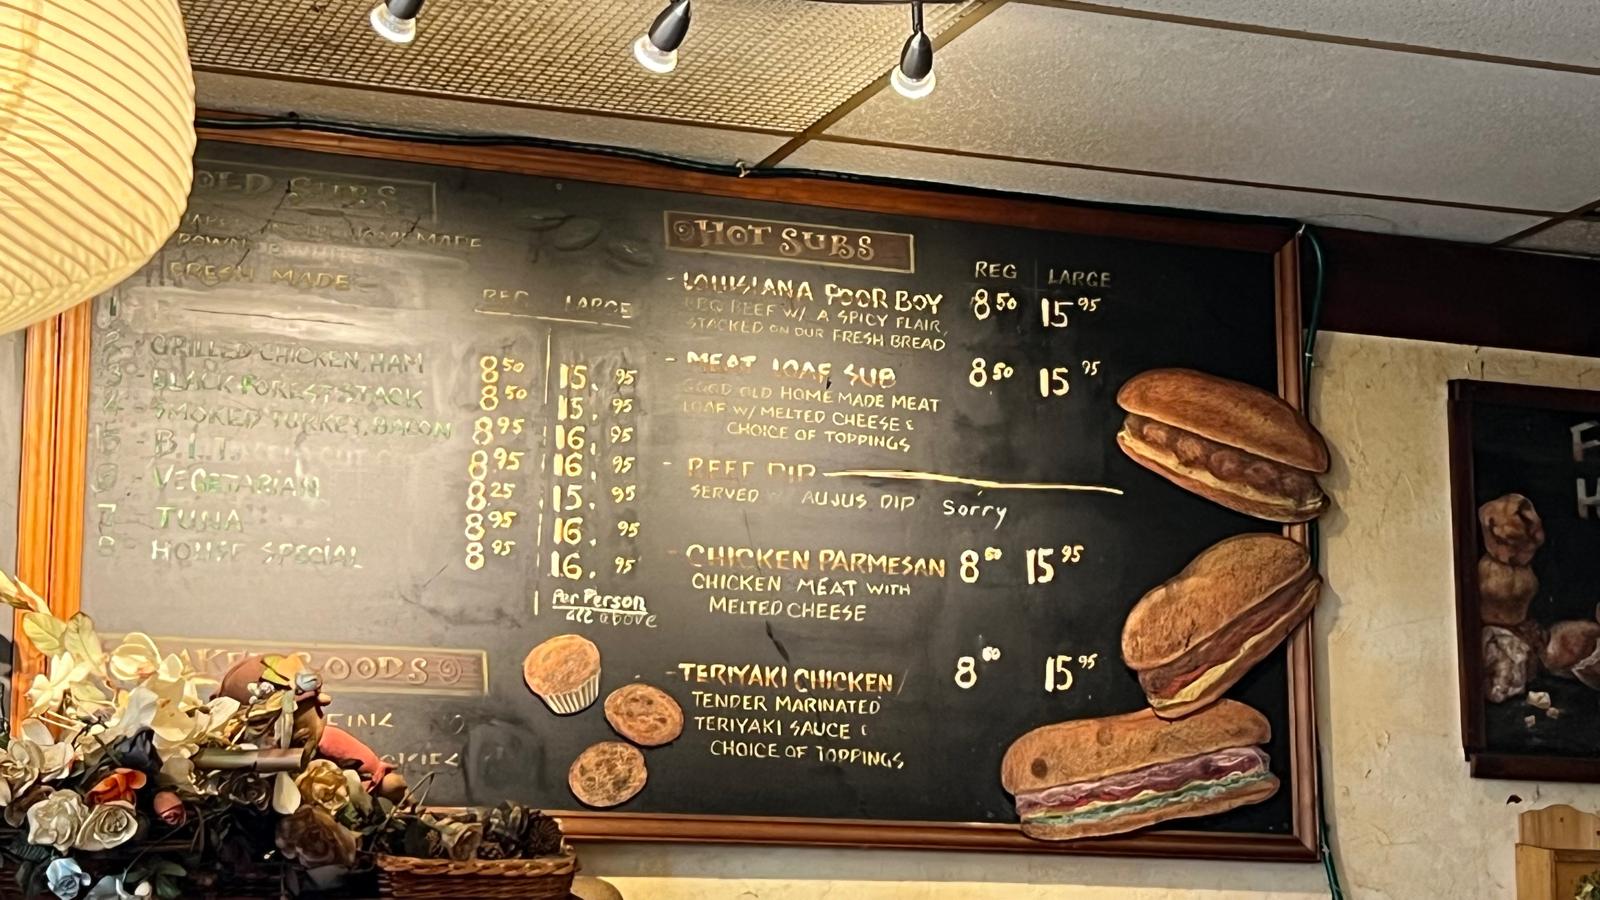 SUBS
HOMEMADE
FRESH MADE
REG LARGE
GRILLED CHICKEN, HAM 8.50 15.95
BLACK FOREST STACK 8.50 15.95
SMOKED TURKEY, BACON 8.95 16.95
B.L.T. 8.95 16.95
6 VEGETARIAN 8.25 15.95
7 TUNA 8.95 16.95
8 HOUSE SPECIAL 8.95 16.95
Per Person
all above
GOODS
HOT SUBS
REG LARGE
- LOUISIANA POOR BOY 8.50 15.95
BBQ BEEF W/ A SPICY FLAIR,
STACKED ON OUR FRESH BREAD
- MEAT LOAF SUB 8.50 15 95
GOOD OLD HOMEMADE MEAT
LOAF W/ MELTED CHEESE &
CHOICE OF TOPPINGS
- BEEF DIP
SERVED AUJUS DIP Sorry
- CHICKEN PARMESAN 8 50 15 95
CHICKEN MEAT WITH
MELTED CHEESE
- TERIYAKI CHICKEN 8 50 15 95
TENDER MARINATED
TERIYAKI SAUCE &
CHOICE OF TOPPINGS